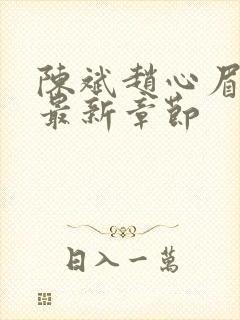 陳斌趙心眉
最新章節
日入一萬